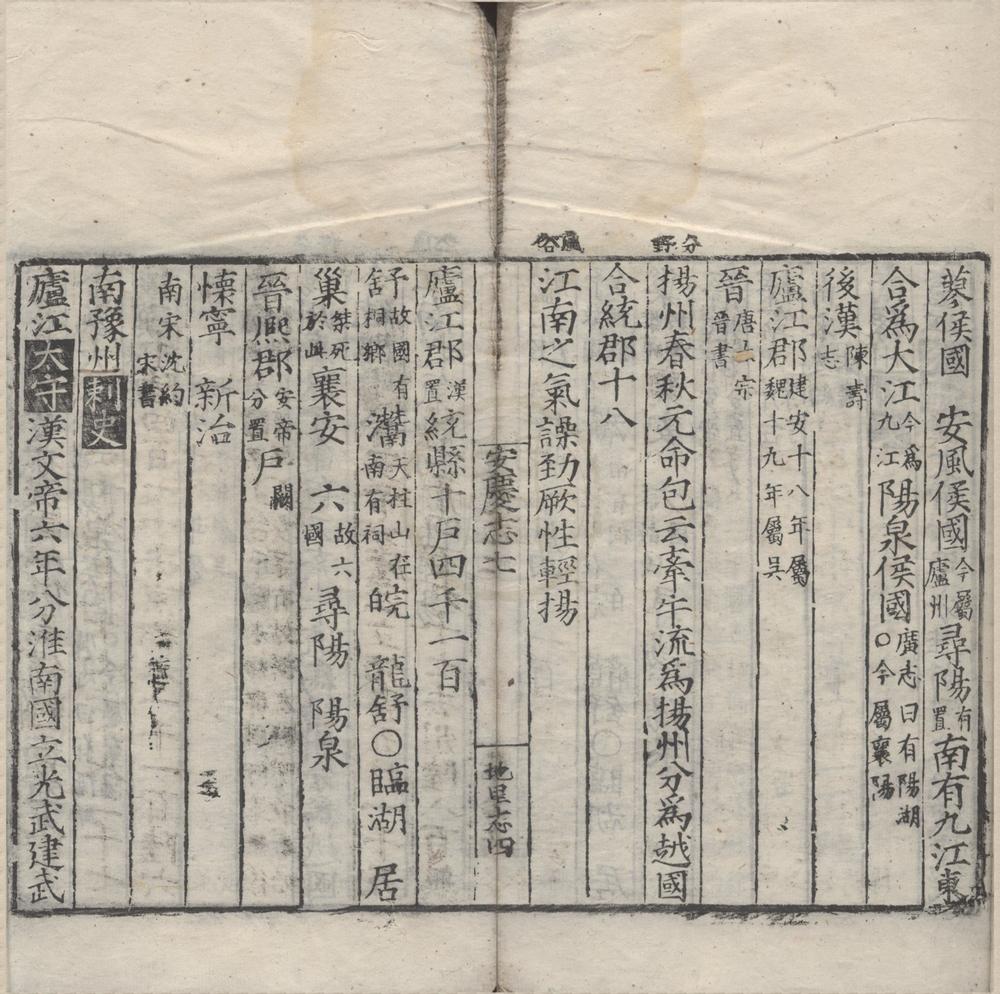 分野
風俗
蓼侯國 安風侯國今屬廬州尋陽有置南有九江東
合爲大江今爲九江陽泉侯國廣志曰有陽湖○今屬襄陽
後漢陳壽志
廬江郡建安十八年屬魏十九年屬吳
晉唐太宗晉書
揚州春秋元命包云牽牛流爲揚州分爲越國
合統郡十八
江南之氣譟勁厥性輕揚
安慶志七
地里志四
廬江郡漢置統縣十戶四千一百
舒故國有桐鄉灊天柱山在南有祠皖 龍舒○臨湖 居
巢桀死於此襄安 六故六國尋陽 陽泉
晉熈郡安帝分置戶闕
懷寧 新治
南宋沈約宋書
南豫州刺史
廬江太守漢文帝六年分淮南國立光武建武